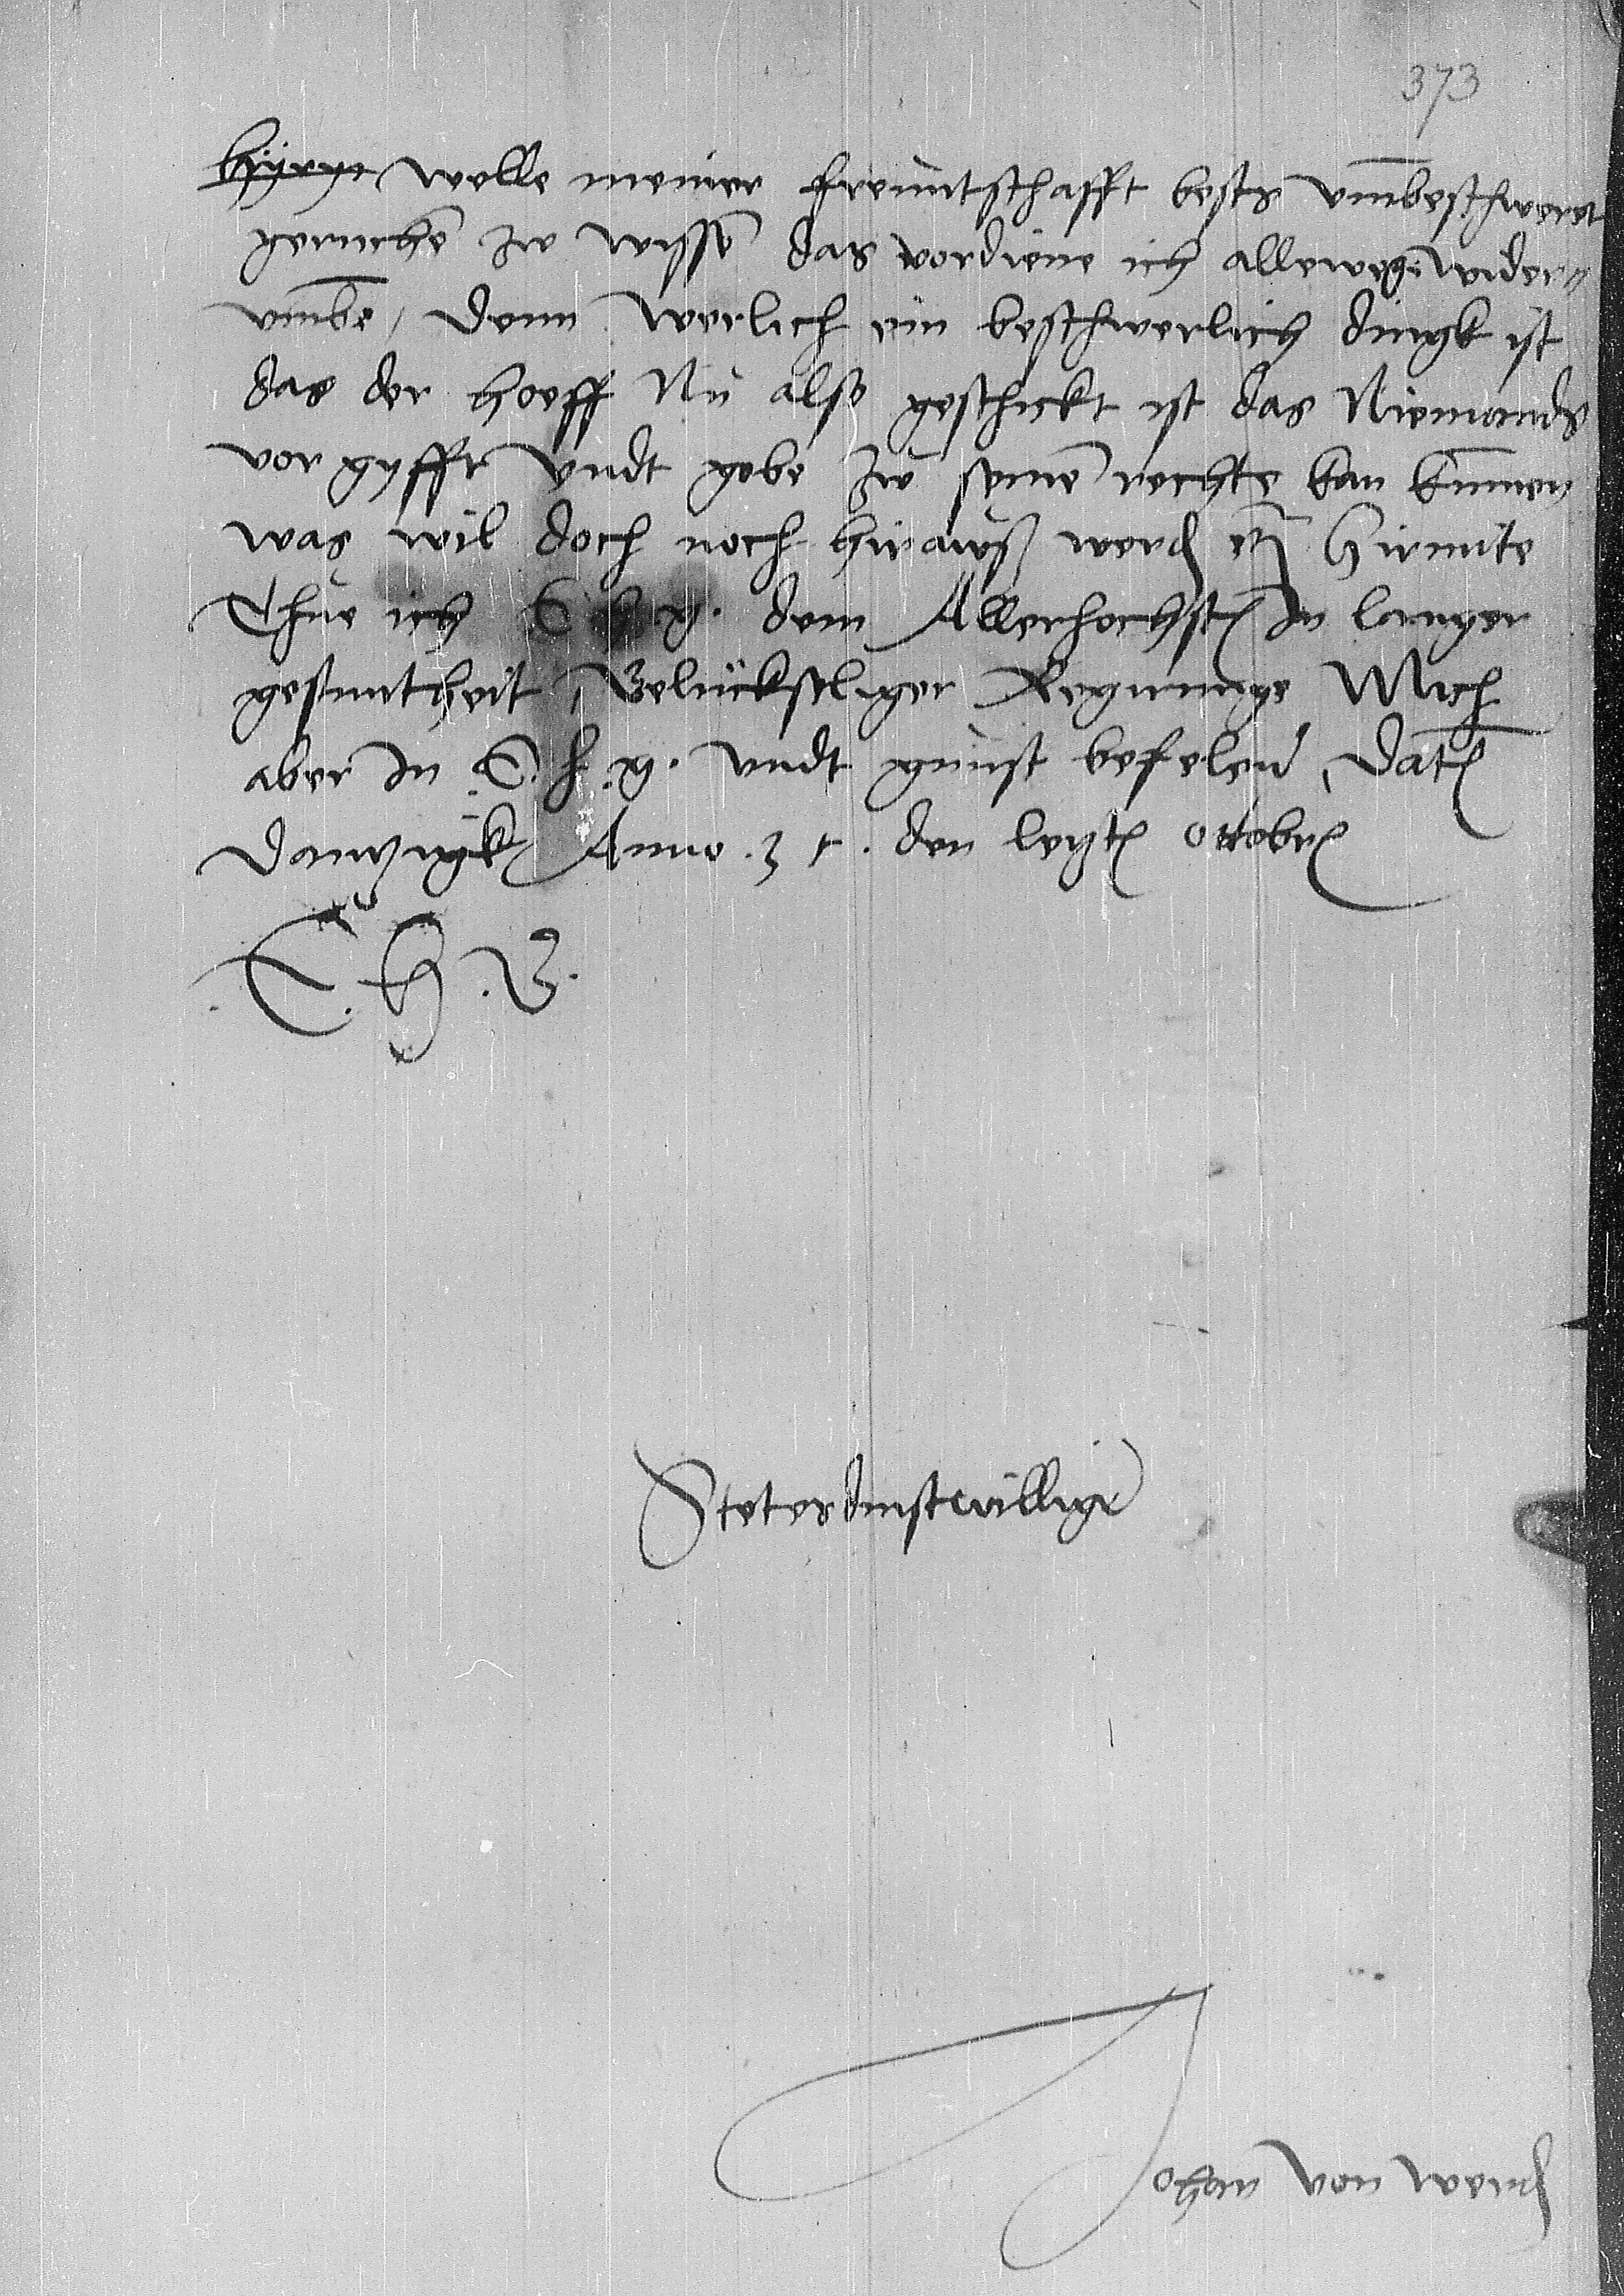 373
welle meiner freuntschafft beste vmbeschwert
geruche zw wyssen das vordiene ich allewege wider
vmbe / denn werlich ein beschwerlich dingk ist
das der hoeff Nu also geschickt ist das Niemands
vor gyfft vndt gabe zw seinē rechte kan kūmen
was wil doch noch hirauß werdē etc Hirmite
Thue ich E h g. dem Allerhochstē In langer
gesuntheit / Gelückseliger Regirunge Mich
aber In E. h. g. vndt gunst befelen, Datē
Dantzigk Anno 31. den letztē octobrē
E. h. G.
Steter dinstwilliger
Johan von werdē